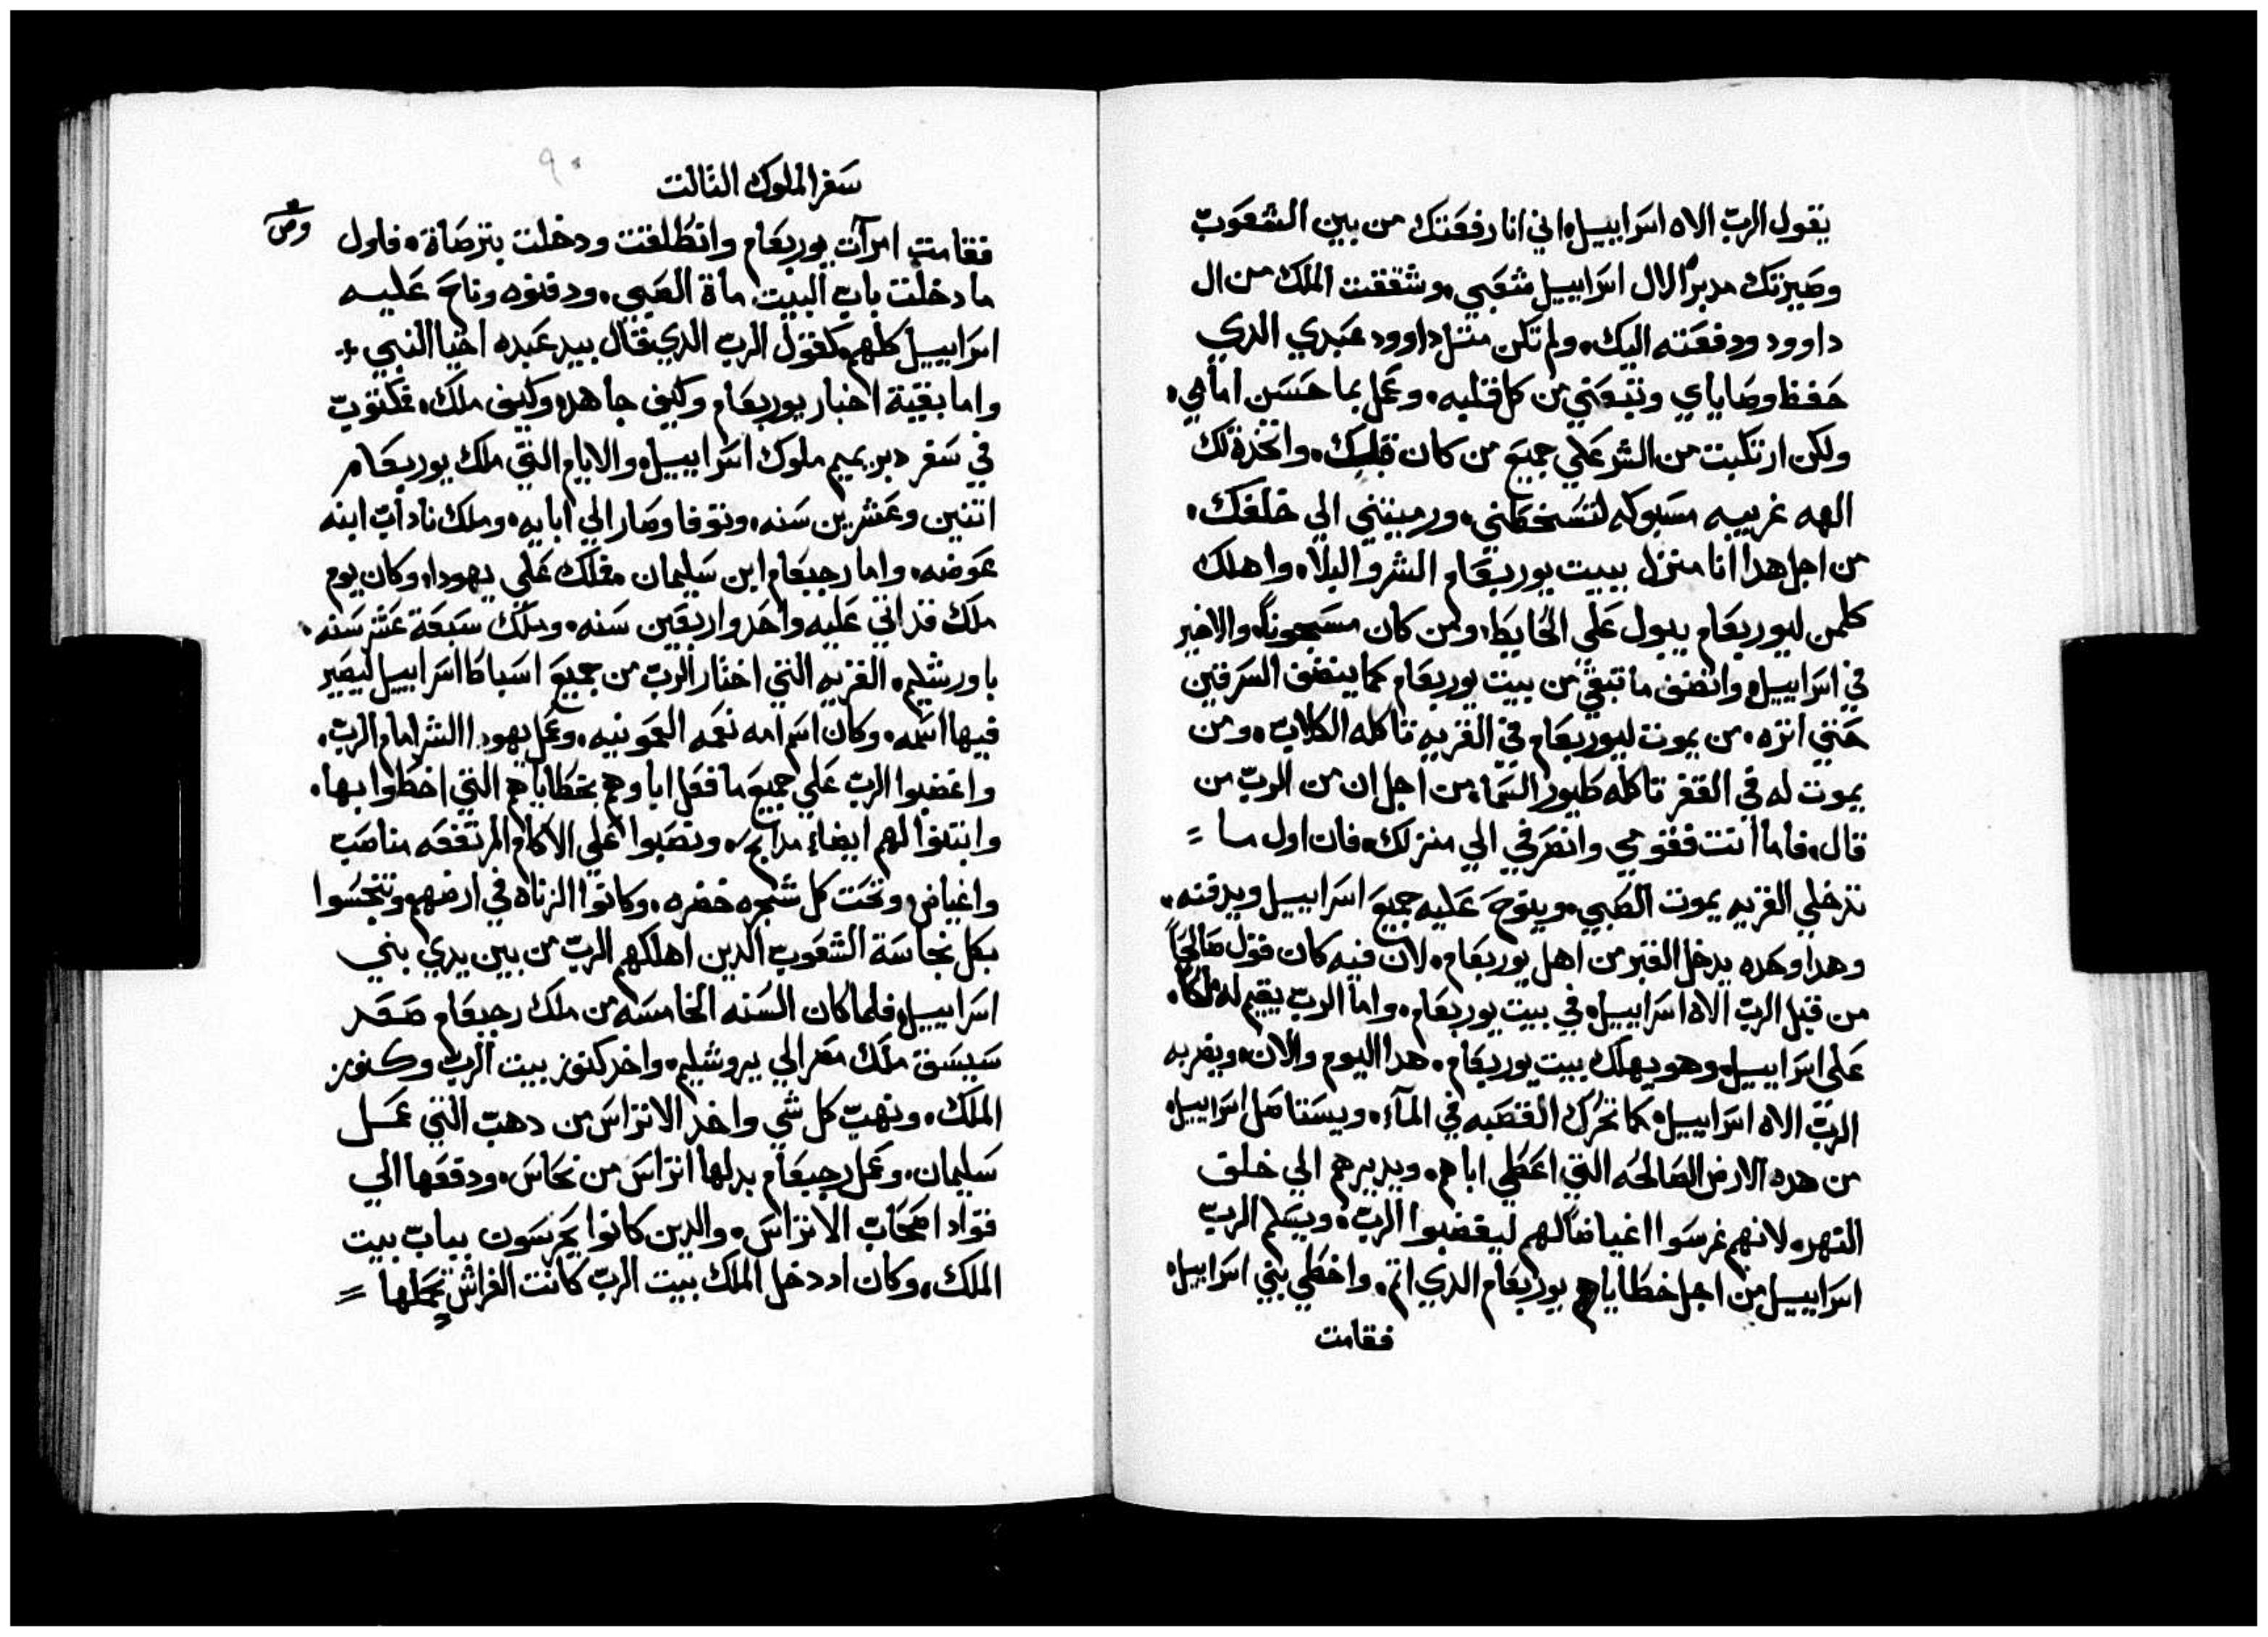 يقول الربّ الاه اسرابييل، اني انا رفعتك من بين الشعوب
وصيرتك مدبراً لال اسرابييل شعبي، وشققت الملك من ال
داوود ودفعته اليك، ولم تكن متل داوود عبدي الدي
حفظ وصاياي وتبعني من كل قلبه، وعمل بما حسن امامي،
ولكن ارتكبت من الشر علي جميع من كان قبلك، واتخدة لك
الهه غريبه مسبوكه لتسخطني، ورميتني الي خلفك،
من اجل هدا انا منزل ببيت يوربعام الشر والبلاء، واهلك
كلمن ليوربعام يبول علي الحايط، ومن كان مسجوناً، والاخير
في اسرابييل، وانضف ما تبقي من بيت يوربعام كما ينضف السرقين
حتي انزه، من يموت ليوربعام في القريه تاكله الكلاب، ومن
يموت له في القفر تاكله طيور السما، من اجل ان من الربّ من
قال، فاما انت فقومي وانصرفي الي منزلك، فان اول ما =
تدخلي القريه يموت الصبي، وينوح عليه جميع اسرابييل ويدفنه،
وهدا وحده يدخل القبر من اهل يوربعام، لان فيه كان قول صالحاً
من قبل الربّ الاه اسرابييل، في بيت يوربعام، واما الربّ يقيم له ملكاً،
علي اسرابييل، وهو يهلك بيت يوربعام، هدا اليوم والان، ويضربه
الربّ الاه اسرابييل، كما تحرك القصبه في المآء، ويستاصل اسرابييل،
من هده الارض الصالحه التي اعطي اباهم، ويديرهم الي خلف
النهر، لانهم غرسوا اغياضاً لهم ليغضبوا الربّ، ويسلم الربّ
اسرابييل من اجل خطاياهم يوربعام الدي اتم، واخطي بني اسرابييل،
فقامت
سفر الملوك التالت
٩٠
فقامت امرآت يوربعام وانطلقت ودخلت بترصاة، فاول
ما دخلت باب البيت ماة الصبي، ودفنوه وناح عليه
اسرابييل كلهم، كقول الربّ الدي قال بيد عبده اخيا النبي ÷
واما بقية اخبار يوربعام وكيف جاهد، وكيف ملك، مكتوبّ
في سفر دبريميم ملوك اسرابييل، والايام التي ملك يوربعام
اتنين وعشرين سنه، وتوفا وصار الي ابايه، وملك ناداب ابنه
عوضه، واما رحبعام ابن سليمان، مملك علي يهودا، وكان يوم
ملك قد اتي عليه واحد واربعين سنه، وملك سبعة عشر سنه،
باورشليم، القريه التي اختار الربّ من جميع اسباط اسرابييل ليصير
فيها اسمه، وكان اسم امه نعمه العمونيه، وعمل يهودا الشر امام الربّ،
واغضبوا الربّ علي جميع ما فعل اباوهم بخطاياهم التي اخطوا بها،
وابتنوا لهم ايضاء مدابح، ونصبوا علي الاكام المرتفعه مناصب
واغياض، وتحت كل شجره خضره، وكانوا الزناه في ارضهم، وتنجسوا
بكل نجاسة الشعوب الدين اهلكهم الربّ من بين يدي بني
اسرابييل، فلما كان السنه الخامسه من ملك رحبعام صعد
سيسق ملك مصر الي يروشليم، واخد كنوز بيت الربّ وكنوز
الملك، ونهب كل شي واخد الاتراس من دهب التي عمل
سليمان، وعمل رحبعام بدلها اتراس من نحاس، ودفعها الي
قواد اصحاب الاتراس، والدين كانوا يحرسون بباب بيت
الملك، وكان اد دخل الملك بيت الربّ كانت الفراش تحملها =